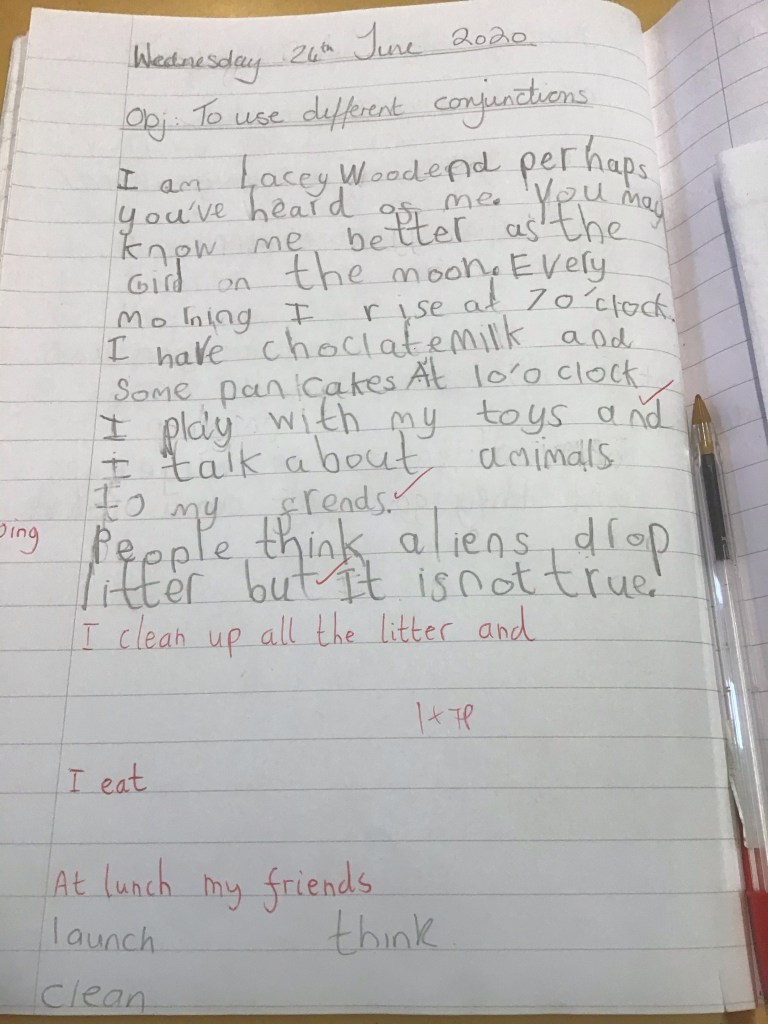 Wednesday 24th June 2020
Obj: To use different conjunctions
I am Lacey Woodend perhaps
you've heard of me. You may
know me better as the
Gird on the moon. Every
morning I rise at 7o'clock.
I have choclate milk and
some pancakes At 10'o clock
I play with my toys and
I talk about animals
to my frends.
People think aliens drop
litter but It is not true.
I clean up all the litter and
I eat
At lunch my friends
launch think
clean